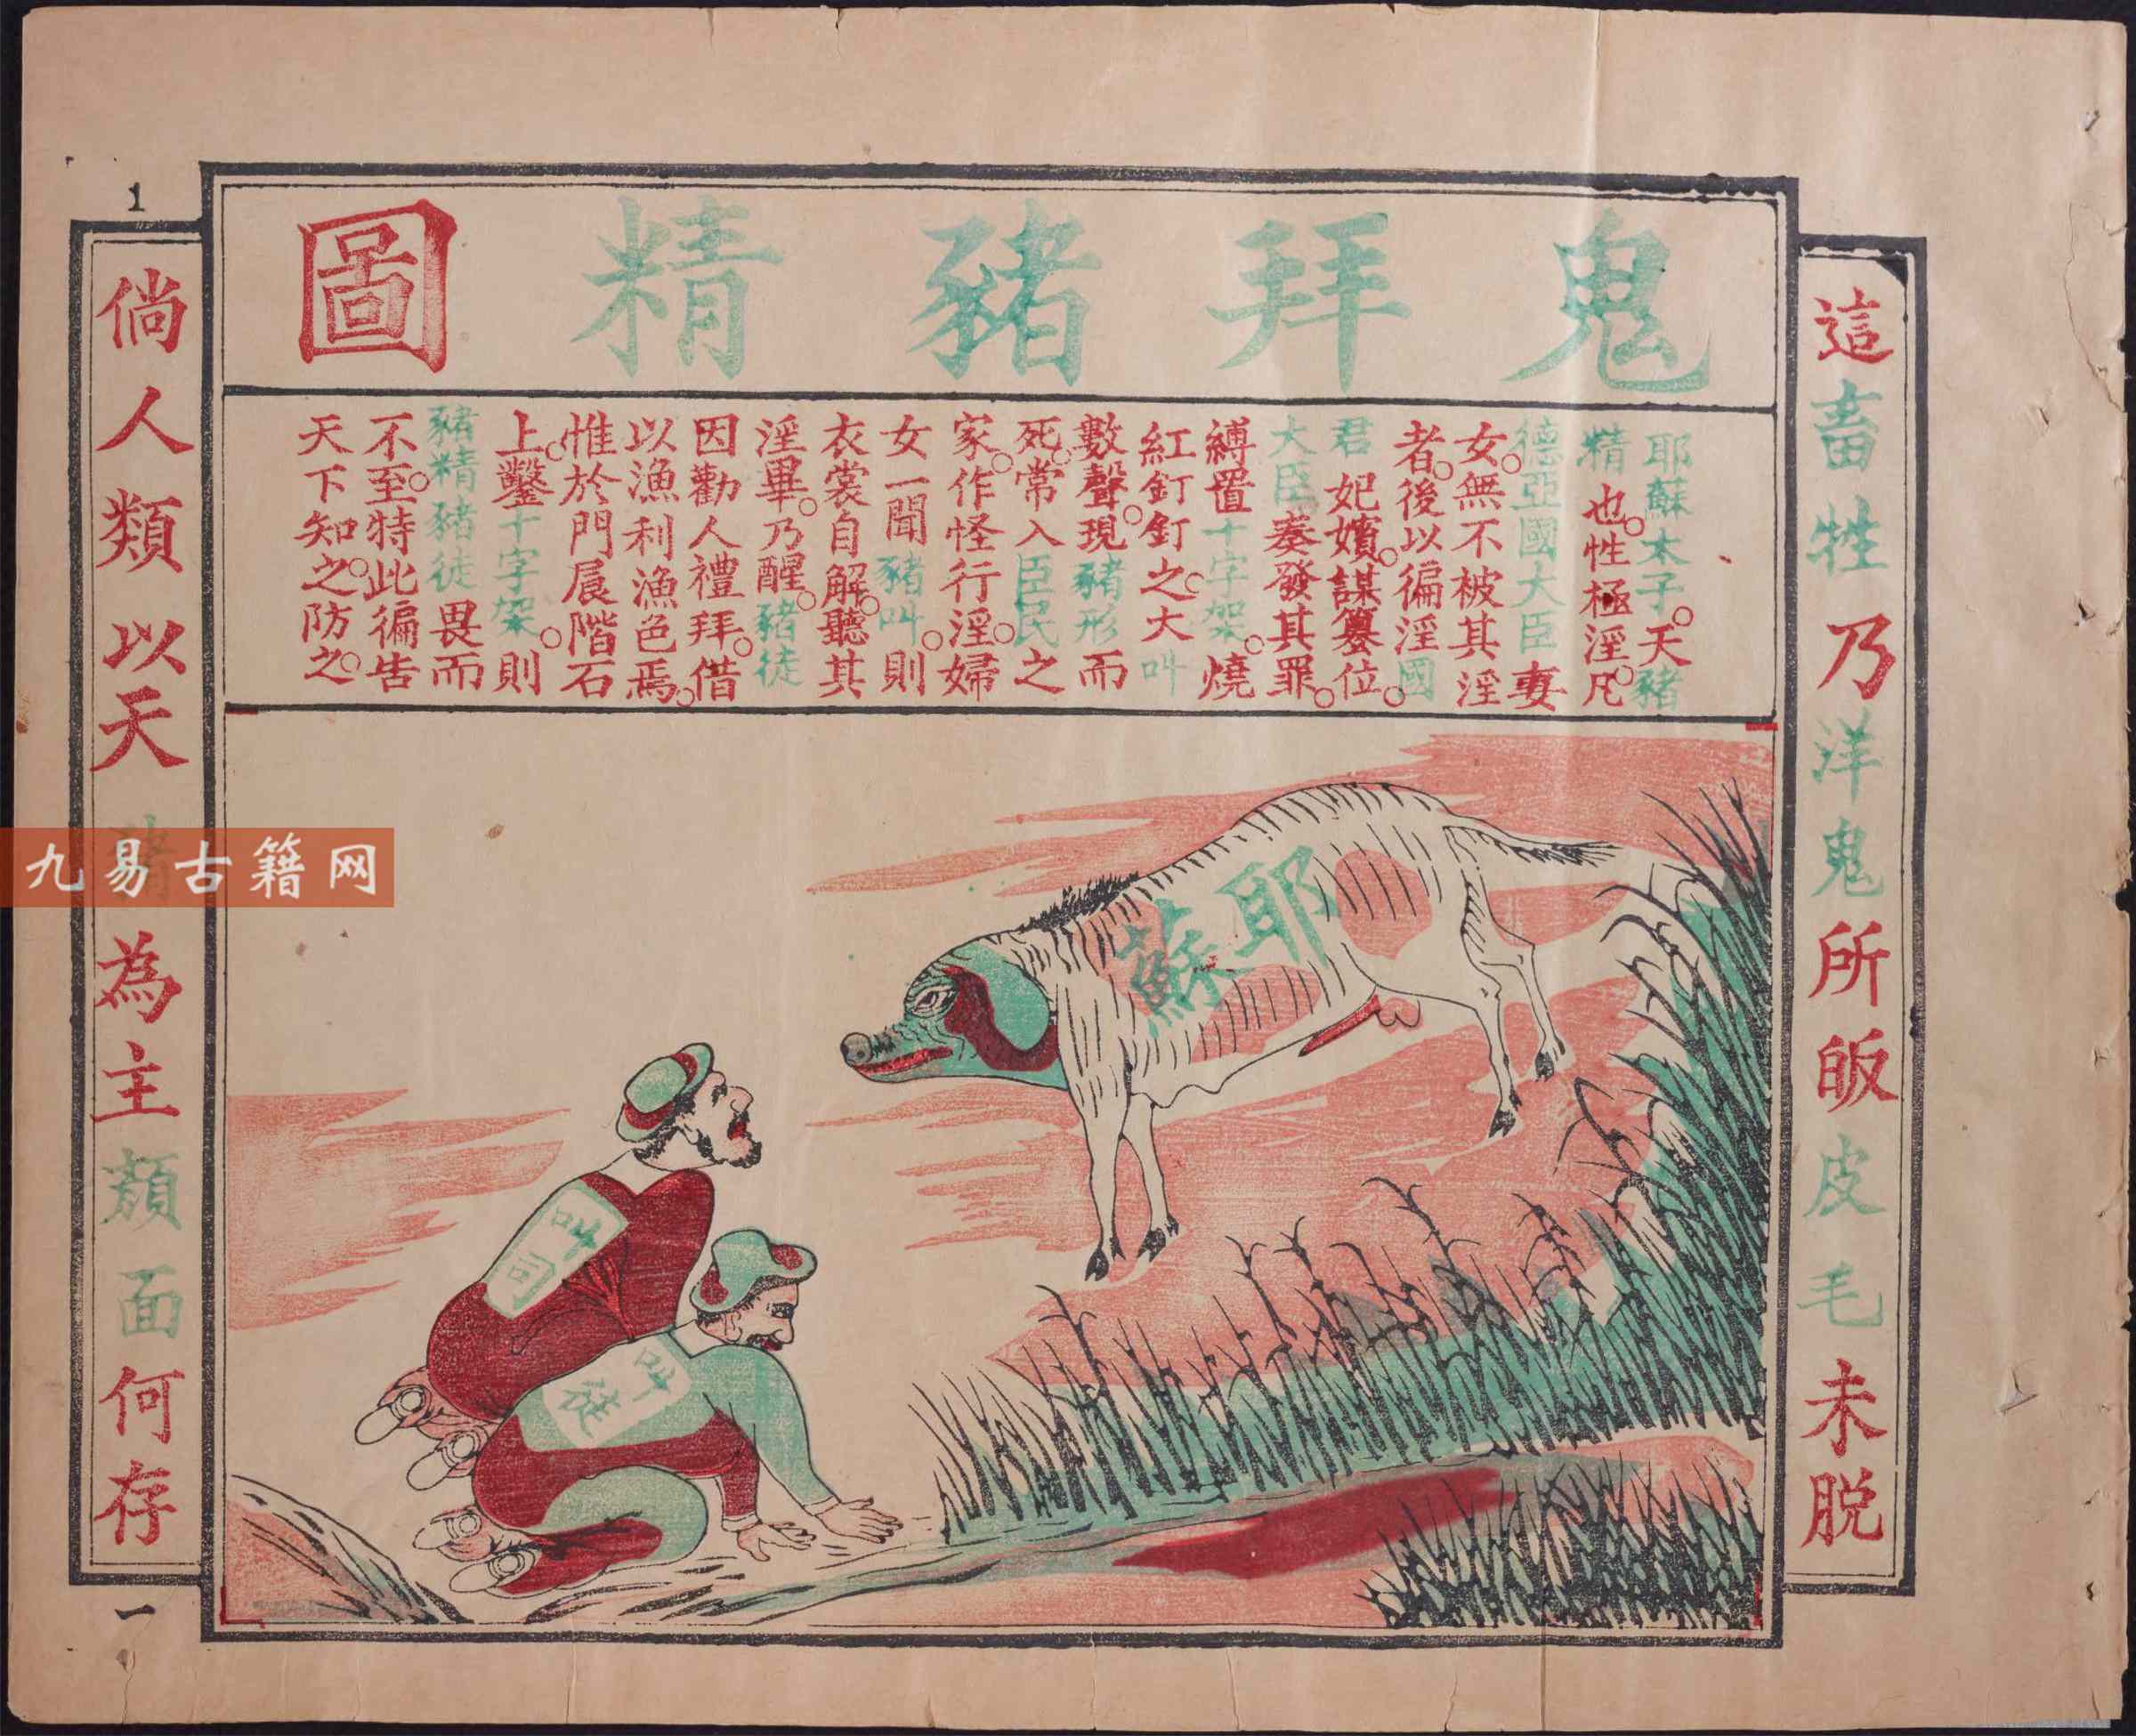 1
鬼拜豬精圖
這畜牲乃洋鬼所皈皮毛未脱
耶蘇太子。天豬
精也。性極淫。凡
德亞國大臣妻
女。無不被其淫
者。後以徧淫國
君妃嬪。謀篡位。
大臣奏發其罪。
縛置十字架。燒
紅釘釘之。大叫
數聲。現豬形而
死。常入臣民之
家。作怪行淫。婦
女一聞豬叫。則
衣裳自解。聽其
淫畢。乃醒。豬徒
因勸人禮拜。借
以漁利漁色焉。
惟於門扆階石
上。鑿十字架。則
豬精豬徒畏而
不至。特此徧告
天下知之。防之。
耶蘇
叫司
叫徒
倘人類以天豬為主顏面何存
一
九易古籍网